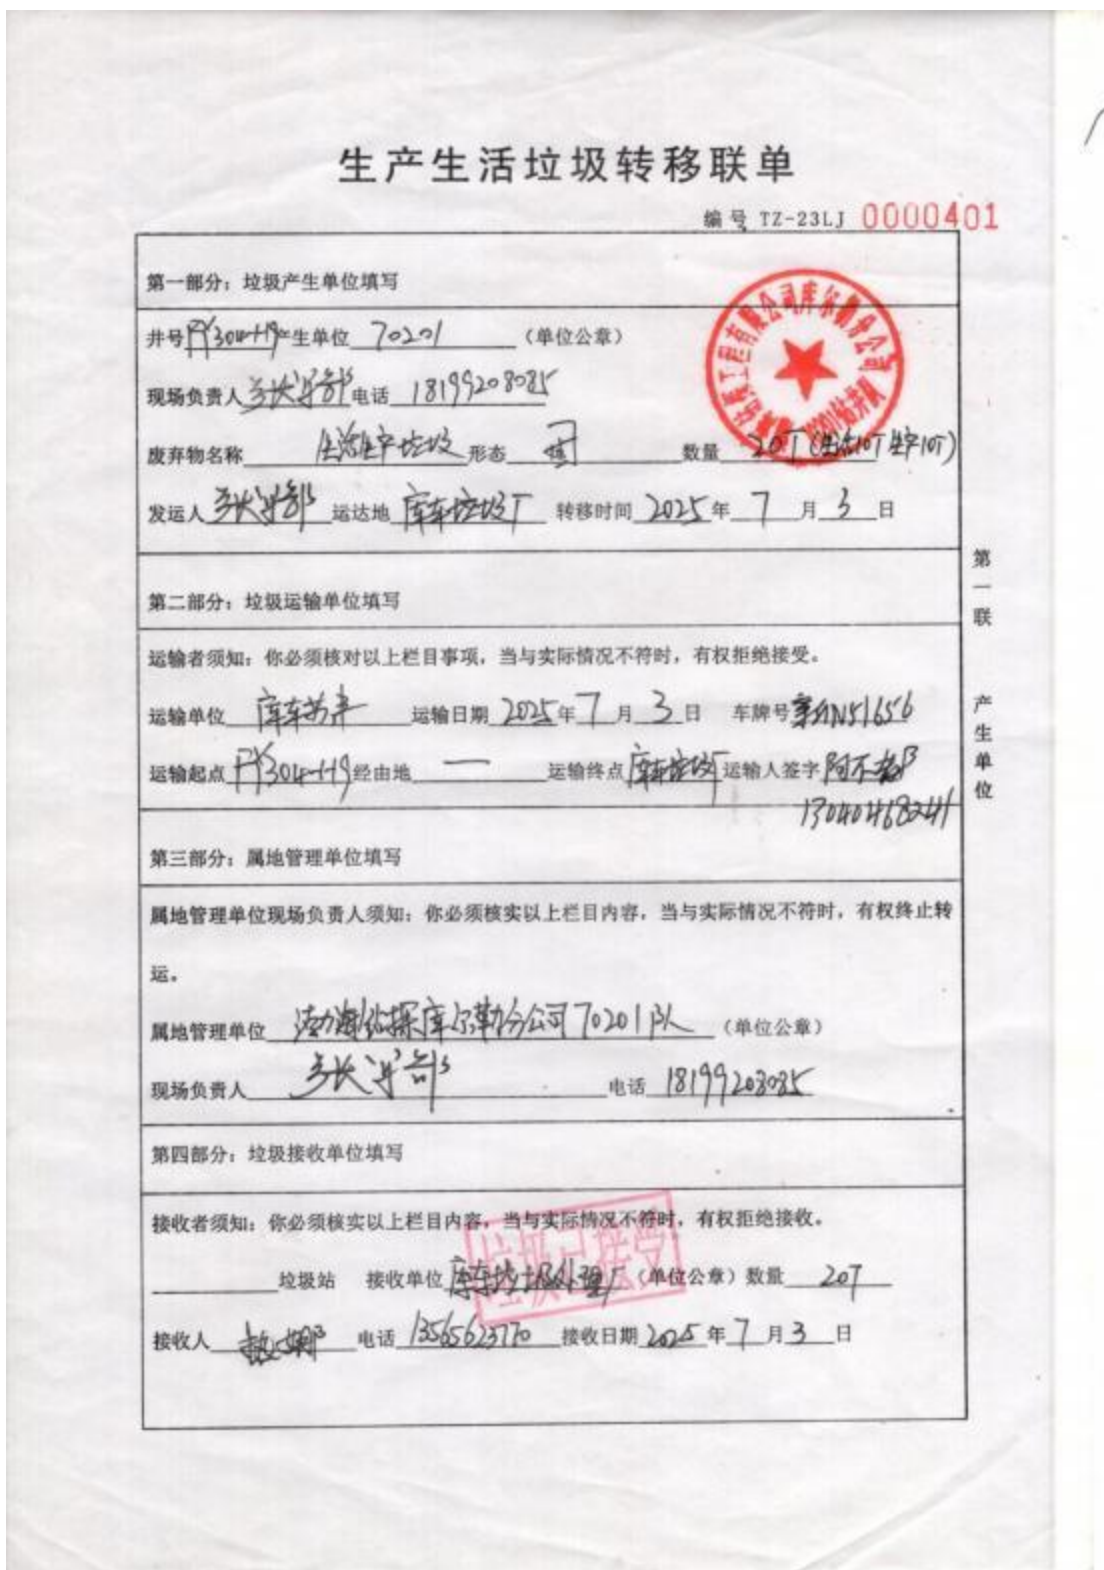 生产生活垃圾转移联单
编号 TZ-23LJ 0000401
第一部分：垃圾产生单位填写
井号 304-1 产生单位 70201 （单位公章）
现场负责人 电话 18199208085
废弃物名称 生活生产垃圾 形态 固 数量 20T（生活10T 生产10T）
发运人 运达地 库车垃圾厂 转移时间 2025年 7 月 3 日
第二部分：垃圾运输单位填写
运输者须知：你必须核对以上栏目事项，当与实际情况不符时，有权拒绝接受。
运输单位 库车 运输日期 2025年 7 月 3 日 车牌号 N51656
运输起点 304-1 经由地 — 运输终点 库车垃圾厂 运输人签字
13040468241
第三部分：属地管理单位填写
属地管理单位现场负责人须知：你必须核实以上栏目内容，当与实际情况不符时，有权终止转
运。
属地管理单位 渤海钻探库尔勒分公司70201队 （单位公章）
现场负责人 电话 18199208085
第四部分：垃圾接收单位填写
接收者须知：你必须核实以上栏目内容，当与实际情况不符时，有权拒绝接收。
垃圾站 接收单位 库车垃圾处理厂 （单位公章）数量 20T
接收人 电话 13565623770 接收日期 2025 年 7 月 3 日
垃圾已接受
第一联 产生单位